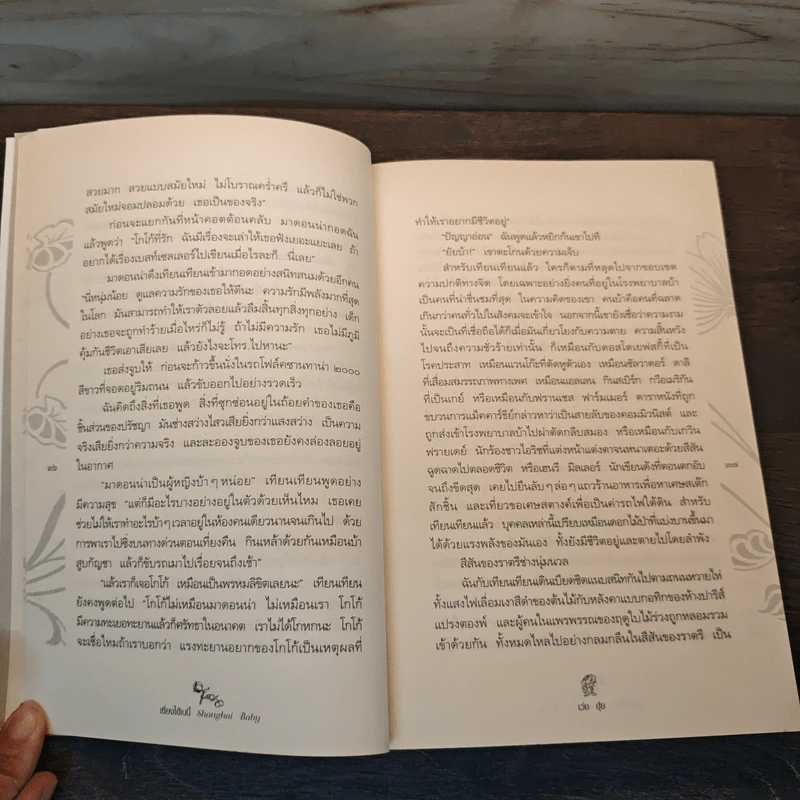 สวยมาก สวยแบบสมัยใหม่ ไม่โบราณคร่ำครึ แล้วก็ไม่ใช่พวก
สมัยใหม่จอมปลอมด้วย เธอเป็นของจริง"
ก่อนจะแยกกันที่หน้าคอตต้อนคลับ มาดอนน่ากอดฉัน
แล้วพูดว่า "โกโก้ที่รัก ฉันมีเรื่องจะเล่าให้เธอฟังเยอะแยะเลย ถ้า
อยากได้เรื่องเบสท์เซลเลอร์ไปเขียนเมื่อไรละก็...นี่เลย"
มาดอนน่าดึงเทียนเทียนเข้ามากอดอย่างสนิทสนมด้วยอีกคน
"นี่หนุ่มน้อย ดูแลความรักของเธอให้ดีนะ ความรักมีพลังมากที่สุด
ในโลก มันสามารถทำให้เราตัวลอยแล้วลืมสิ้นทุกสิ่งทุกอย่าง เด็ก
อย่างเธอจะถูกทำร้ายเมื่อไหร่ก็ไม่รู้ ถ้าไม่มีความรัก เธอไม่มีภูมิ
คุ้มกันชีวิตเอาเสียเลย แล้วยังไงจะโทร.ไปหานะ"
เธอส่งจูบให้ ก่อนจะก้าวขึ้นนั่งในรถโฟล์คซานทาน่า ๒๐๐๐
สีขาวที่จอดอยู่ริมถนน แล้วขับออกไปอย่างรวดเร็ว
ฉันคิดถึงสิ่งที่เธอพูด สิ่งที่ซุกซ่อนอยู่ในถ้อยคำของเธอคือ
ชิ้นส่วนของปรัชญา มันช่างสว่างไสวเสียยิ่งกว่าแสงสว่าง เป็นความ
จริงเสียยิ่งกว่าความจริง และละอองจูบของเธอยังคงล่องลอยอยู่
ในอากาศ
๓๖
"มาดอนน่าเป็นผู้หญิงบ้าๆ หน่อย" เทียนเทียนพูดอย่าง
มีความสุข "แต่ก็มีอะไรบางอย่างอยู่ในตัวด้วยเห็นไหม เธอเคย
ช่วยไม่ให้เราทำอะไรบ้าๆ เวลาอยู่ในห้องคนเดียวนานจนเกินไป ด้วย
การพาเราไปซิ่งบนทางด่วนตอนเที่ยงคืน กินเหล้าด้วยกันเหมือนบ้า
สูบกัญชา แล้วก็ขับรถเมาไปเรื่อยจนถึงเช้า"
"แล้วเราก็เจอโกโก้ เหมือนเป็นพรหมลิขิตเลยนะ" เทียนเทียน
ยังคงพูดต่อไป "โกโก้ไม่เหมือนมาดอนน่า ไม่เหมือนเรา โกโก้
มีความทะเยอทะยานแล้วก็ศรัทธาในอนาคต เราไม่ได้โกหกนะ โกโก้
จะเชื่อไหมถ้าเราบอกว่า แรงทะยานอยากของโกโก้เป็นเหตุผลที่
เซี่ยงไฮ้เบบี้ Shanghai Baby
ทำให้เราอยากมีชีวิตอยู่"
"ปัญญาอ่อน" ฉันพูดแล้วหยิกก้นเขาไปที
"ยัยบ้า!" เขาตะโกนด้วยความเจ็บ
สำหรับเทียนเทียนแล้ว ใครก็ตามที่หลุดไปจากขอบเขต
ความปกติทางจิต โดยเฉพาะอย่างยิ่งคนที่อยู่ในโรงพยาบาลบ้า
เป็นคนที่น่าชื่นชมที่สุด ในความคิดของเขา คนบ้าคือคนที่ฉลาด
เกินกว่าคนทั่วไปในสังคมจะเข้าใจ นอกจากนี้เขายังเชื่อว่าความงาม
นั้นจะเป็นที่เชื่อถือได้ก็เมื่อมันเกี่ยวโยงกับความตาย ความสิ้นหวัง
ไปจนถึงความชั่วร้ายเท่านั้น ก็เหมือนกับดอสโตเยฟสกีที่เป็น
โรคประสาท เหมือนแวนโก๊ะที่ตัดหูตัวเอง เหมือนซัลวาดอร์ ดาลี
ที่เสื่อมสมรรถภาพทางเพศ เหมือนแอลเลน กินสเบิร์ก กวีอเมริกัน
ที่เป็นเกย์ หรือเหมือนกับฟรานเซส ฟาร์มเมอร์ ดาราหนังที่ถูก
ขบวนการแม็คคาร์ธีย์กล่าวหาว่าเป็นสายลับของคอมมิวนิสต์ และ
ถูกส่งเข้าโรงพยาบาลบ้าไปผ่าตัดกลีบสมอง หรือเหมือนกับเกวิน
ฟรายเดย์ นักร้องชาวไอริชที่แต่งหน้าแต่งตาจนหนาเตอะด้วยสีสัน
ฉูดฉาดไปตลอดชีวิต หรือเฮนรี มิลเลอร์ นักเขียนดังที่ตอนตกอับ
จนถึงขีดสุด เคยไปยืนลับๆ ล่อๆ แถวร้านอาหารเพื่อหาเศษเด็ก
๓๗
สักชิ้น และเที่ยวขอเศษสตางค์เพื่อเป็นค่ารถไฟใต้ดิน สำหรับ
เทียนเทียนแล้ว บุคคลเหล่านี้เปรียบเหมือนดอกไม้ป่าที่แบ่งบานขึ้นมา
ได้ด้วยแรงพลังของมันเอง ทั้งยังมีชีวิตอยู่และตายไปโดยลำพัง
สีสันของราตรีช่างนุ่มนวล
ฉันกับเทียนเทียนเดินเบียดชิดแนบสนิทกันไปตามถนนหวายไห่
ทั้งแสงไฟเลื่อมเงาสีดำของต้นไม้กับหลังคาแบบกอทิกของห้างปารีส์
แปรงตองพ์ และผู้คนในแพรพรรณของฤดูใบไม้ร่วงถูกหลอมรวม
เข้าด้วยกัน ทั้งหมดไหลไปอย่างกลมกลืนในสีสันของราตรี เป็น
เว่ย ฮุ่ย